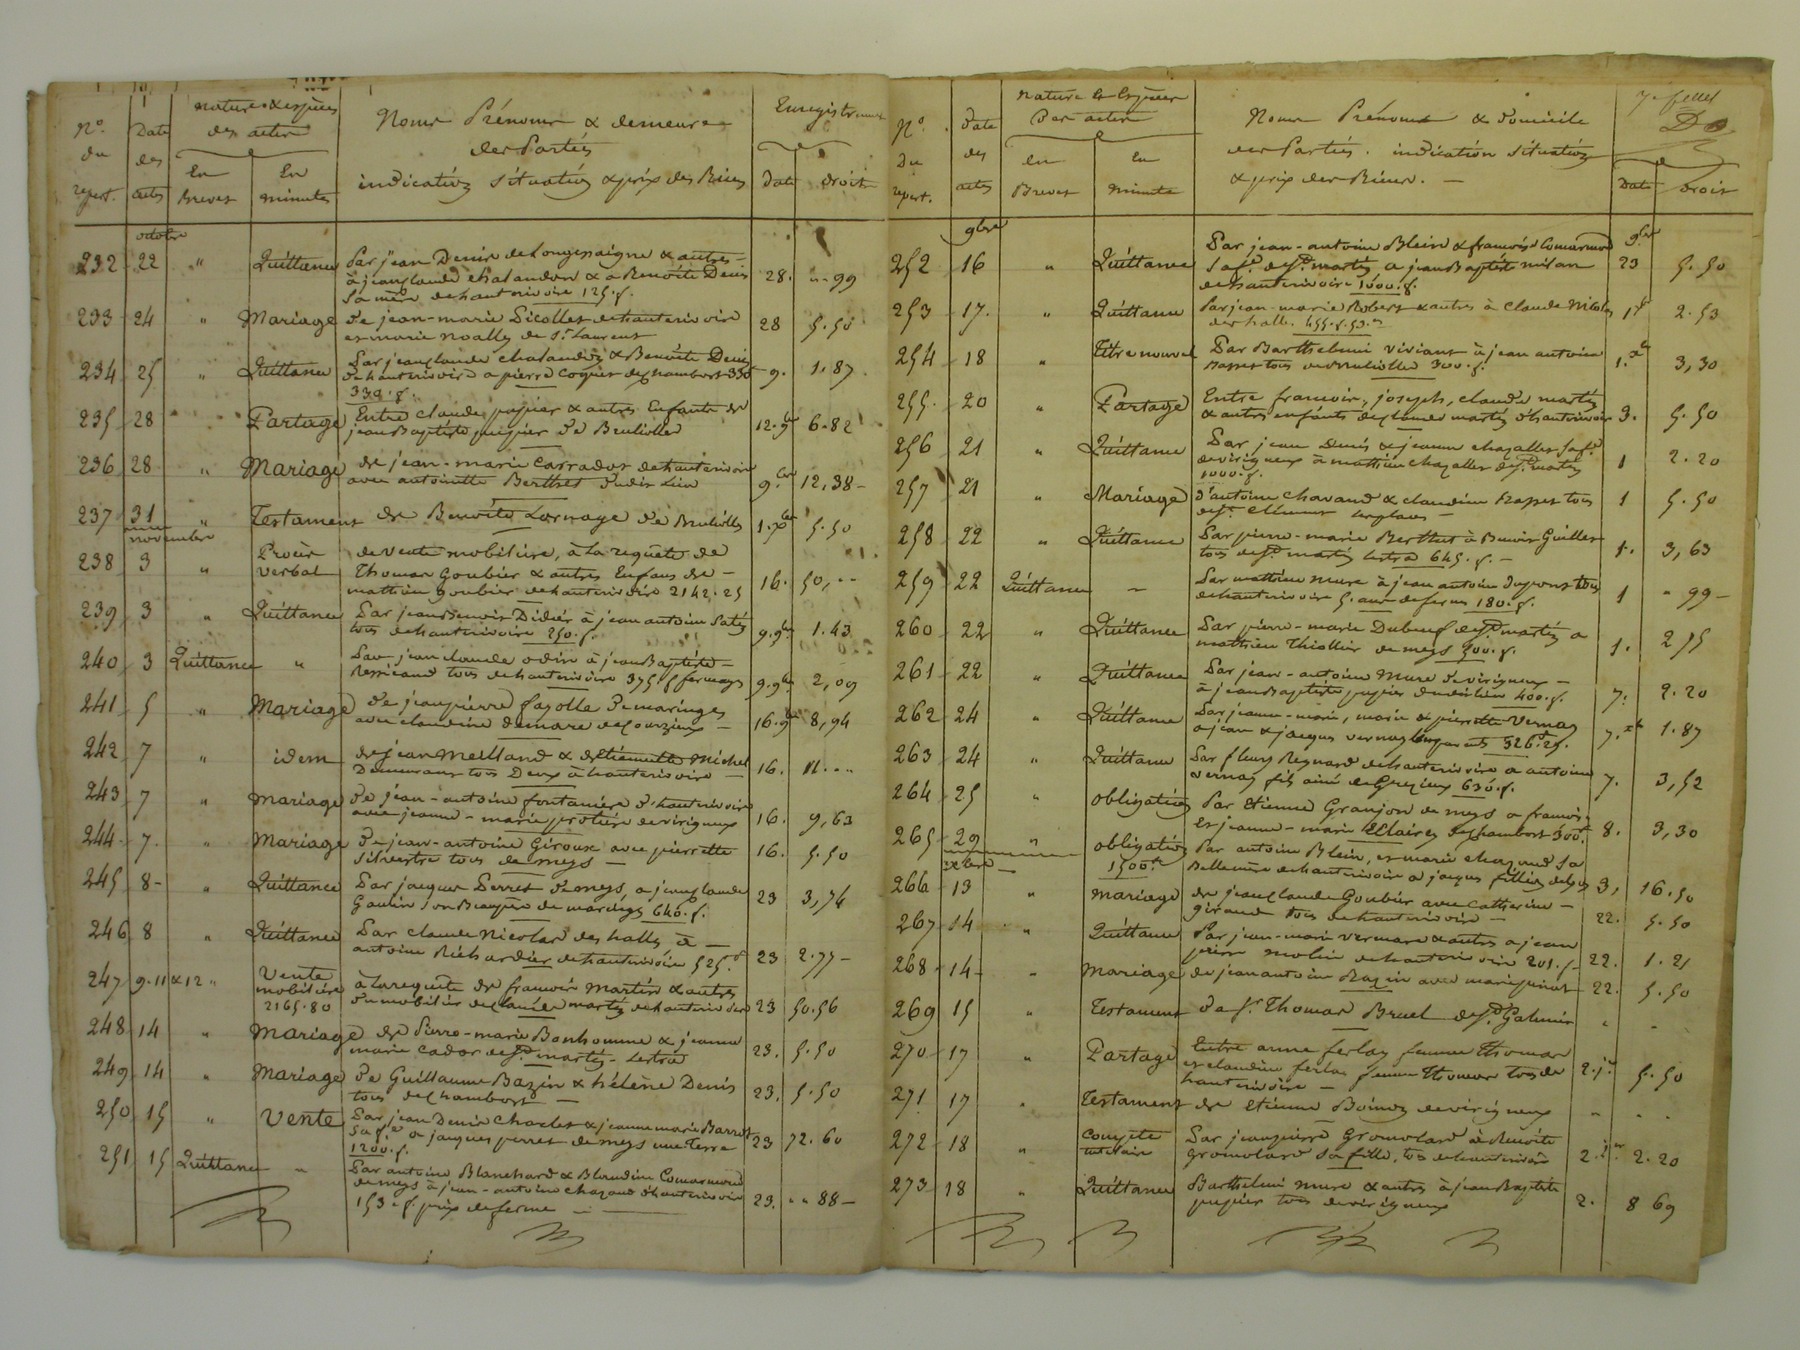 N.o Date nature & espèces Noms Prénoms & demeure Enregistrement
du des des actes des Parties
repert. actes En Brevet En minutes indication situation & prix des Biens Date droit
octobre
232 22 " Quittance Par jean Denis de Longessaigne & autres
à jean claude chalandon & a Benoite Denis 28. " 99
sa mère de hauterivoire 125.f.
233 24 " Mariage de jean-marie Picollet de hauterivoire 28 5.50
et marie noally de St Laurent
234 25 " Quittance Par jean claude chalandon & Benoite Denis
de hauterivoire a pierre Coquet de chambost 330 9. 1.87
330.f.
235 28 " Partage Entre claude pupier & autres Enfants de
jean Baptiste pupier de Brullioles 12.9bre 6.82
236 28 " Mariage de jean-marie Carrador de hauterivoire
avec antoinette Berthet dudit Lieu 9.bre 12,38
237 31 " Testament de Benoite Lornage de Brullioles 1.xbre 5.50
novembre
238 3 " Procès verbal de vente mobilière, à la requête de
Thomas Goubier & autres Enfans de
mathieu Goubier de hauterivoire 2142.25 16. 50,--
239 3 " Quittance Par jean Benoit Didier à jean antoine
tous de hauterivoire 250.f. 9.9bre 1.43
240 3 Quittance " Par jean claude odin à jean Baptiste
tous de hauterivoire 375.f fermages 9.9bre 2,09
241 5 " Mariage de jean pierre fayolle de maringes
avec claudine demare de Courzieux 16.9bre 8,94
242 7 " idem de jean Meilland & d'Etiennette Michel
Demeurans tous Deux à hauterivoire 16. 11...
243 7 " Mariage de jean-antoine fontanière d'hauterivoire
avec jeanne-marie protière de virigneux 16. 9,63
244 7. " Mariage de jean-antoine Giroux avec pierrette
silvestre tous de meys 16. 5.50
245 8 " Quittance Par jacques Perret de meys, a jean claude
Goutin son Beaupère de maringes 640.f. 23 3,74
246 8 " Quittance Par claude Nicolas des halles à
antoine Richardier de hauterivoire 525.f 23 2.77
247 9.11 & 12 " Vente mobilière 2165.80 à la requête de francois Martin & autres
du mobilier de claude martin de hauterivoire 23 50.56
248 14 " Mariage de Pierre-marie Bonhomme & jeanne
marie Cador de St martin-Lestra 23. 5.50
249 14 " Mariage de Guillaume Bazin & hélène Denis
tous de chambost 23. 5.50
250 15 " Vente Par jean Denis Charles & jeanne marie Barrot
sa fe a jacques perret de meys une Terre 23 72.60
1200.f.
251 15 Quittance " Par antoine Blanchard & Blandine Comarmond
de meys à jean-antoine chazaud d'hauterivoire
153.f. prix de ferme 23. " 88
N.o date Nature & Espèces Noms Prénoms & domicile 7e feuillet
Du des Des actes des Parties. indication situation
repert. actes En Brevet En minute & prix des Biens. Date droit
9bre 9bre
252 16 " Quittance Par jean-antoine Blein & francoise Comarmond
sa fe de St martin a jean Baptiste milan 23 5.50
de hauterivoire 1000.f.
253 17. " Quittance Par jean-marie Robert & autres à Claude Nicolas
des halles. 455.f.53.c 1 2.53
254 18 " Titre nouvel Par Barthelmi viviant à jean antoine
tous de Brullioles 300.f. 1. 3,30
255. 20 " Partage Entre francois, joseph, claude martin
& autres enfants de claude martin d'hauterivoire 3. 5.50
256 21 " Quittance Par jean Denis & jeanne chazalles sa fe
de virigneux à mathieu chazalles de St martin 1 2.20
1000.f.
257 21 " Mariage d'antoine Chavand & claudine tous
de St Clément les places 1 5.50
258 22 " Quittance Par pierre-marie Berthet à Benoit Guillot
tous de St martin Lestra 645.f. 1. 3,63
259 22 Quittance " Par mathieu mure à jean antoine Dupont tous
de hauterivoire 5. ans de ferme 180.f. 1 " 99
260 22 " Quittance Par pierre-marie Dubeuf de St martin a
mathieu Thiollier de meys 500.f. 1. 2 75
261 22 " Quittance Par jean-antoine Mure de virigneux
à jean Baptiste pupier dudit lieu 400.f. 7. 2.20
262 24 " Quittance Par jeanne-marie, marie & pierrette Vernay
a jean & jacques vernay 326.f 25. 7. 1.87
263 24 " Quittance Par fleury Regnard de hauterivoire a antoine
vernay fils ainé de Grezieux 630.f. 7. 3,52
264 25 " obligation Par Etienne Granjon de meys a francois
et jeanne-marie de chambost 300f. 8. 3,30
265 29 " obligation 1500f. Par antoine Blein, et marie chazaud sa
Bellemère de hauterivoire a jacques 3, 16.50
xbre
266 13 " Mariage de jean claude Goubier avec Catherine
giraud tous de hauterivoire 22. 5.50
267 14 " Quittance Par jean-marie vermare & autres a jean
pierre molin de hauterivoire 201.f. 22. 1.21
268 14 " Mariage de jean antoine Bazin avec marie 22. 5.50
269 15 " Testament de Sr Thomas Bruel de St Galmier " "
270 17 " Partage Entre anne ferlay femme Thomas
et claudine ferlay femme Thomas tous de
hauterivoire 2.jer 5.50
271 17 " Testament de Etienne Boinon de virigneux " " "
272 18 " Compte tutelair Par jean pierre Gromolard à Benoite
Gromolard sa fille, tous de hauterivoire 2.jer 2.20
273 18 " Quittance Barthelmi mure & autres à jean Baptiste
pupier tous de virigneux 2. 8 69